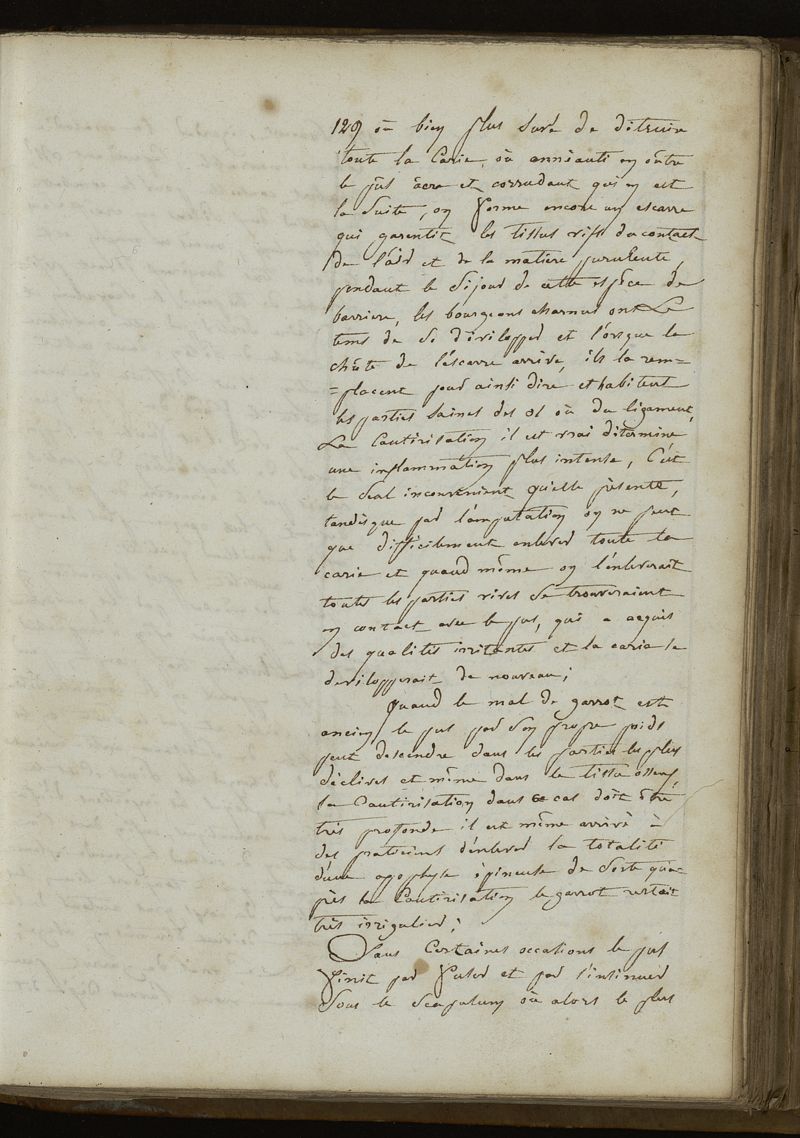 129 où bien plus suré de ditruire
toute la Carie, où anniauti on oûtre
le pus âcre et corrodant qui en est
la Suite, on Forme encore un escarre
qui garentit les tissus vifs du contact
de l'aîr et de la matière purulente,
pendant le Sijour de cette espèce de
barriere, les bourgeons charnus ont Le
tems de Se dévilopper et l'orsque la
chûte de l'éscarre arrive, ils la rem=
=placent pour ainsi dire et habitent
les parties Saines des os où du ligament,
La Cautirisation il est vrai ditermine
une inflammation plus intense, C'ést
le Seul inconvenient qu'elle présente,
tandisque par l'amputation on ne peut
que difficilement enlever toute la
carie et quand même on l'enleverait
toutes les parties vives Se trouveraient
en contact avec le pus, qui a acquis
des qualités irritantes et la carie Se
devilopperait de nouveau;
Quand le mal de garrot est
ancien le pus par Son propre poids
peut descendre dans les parties les plus
déclives et même dans le tissu osseux,
la Cautirisation dans ce cas doit être
très profonde il est même arrivé à
des praticiens d'enlever la totalité
d'une apophyse épineuse de Sorte qu'a=
près la Cautirisation le garrot restait
très irrigulier;
Dans Certaines occations le pus
Finit par Fuser et par l'insinuer
Sous le Scapulum où alors le plus